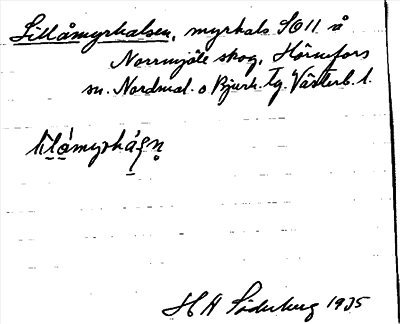 Lillåmyrhalsen, myrhals SO 11 å
Norrmjöle skog, Hörnefors
sn. Nordmal. o Bjurh. tg. Västerb. l.
lilåmyrhálsn̥
H A Söderberg 1935